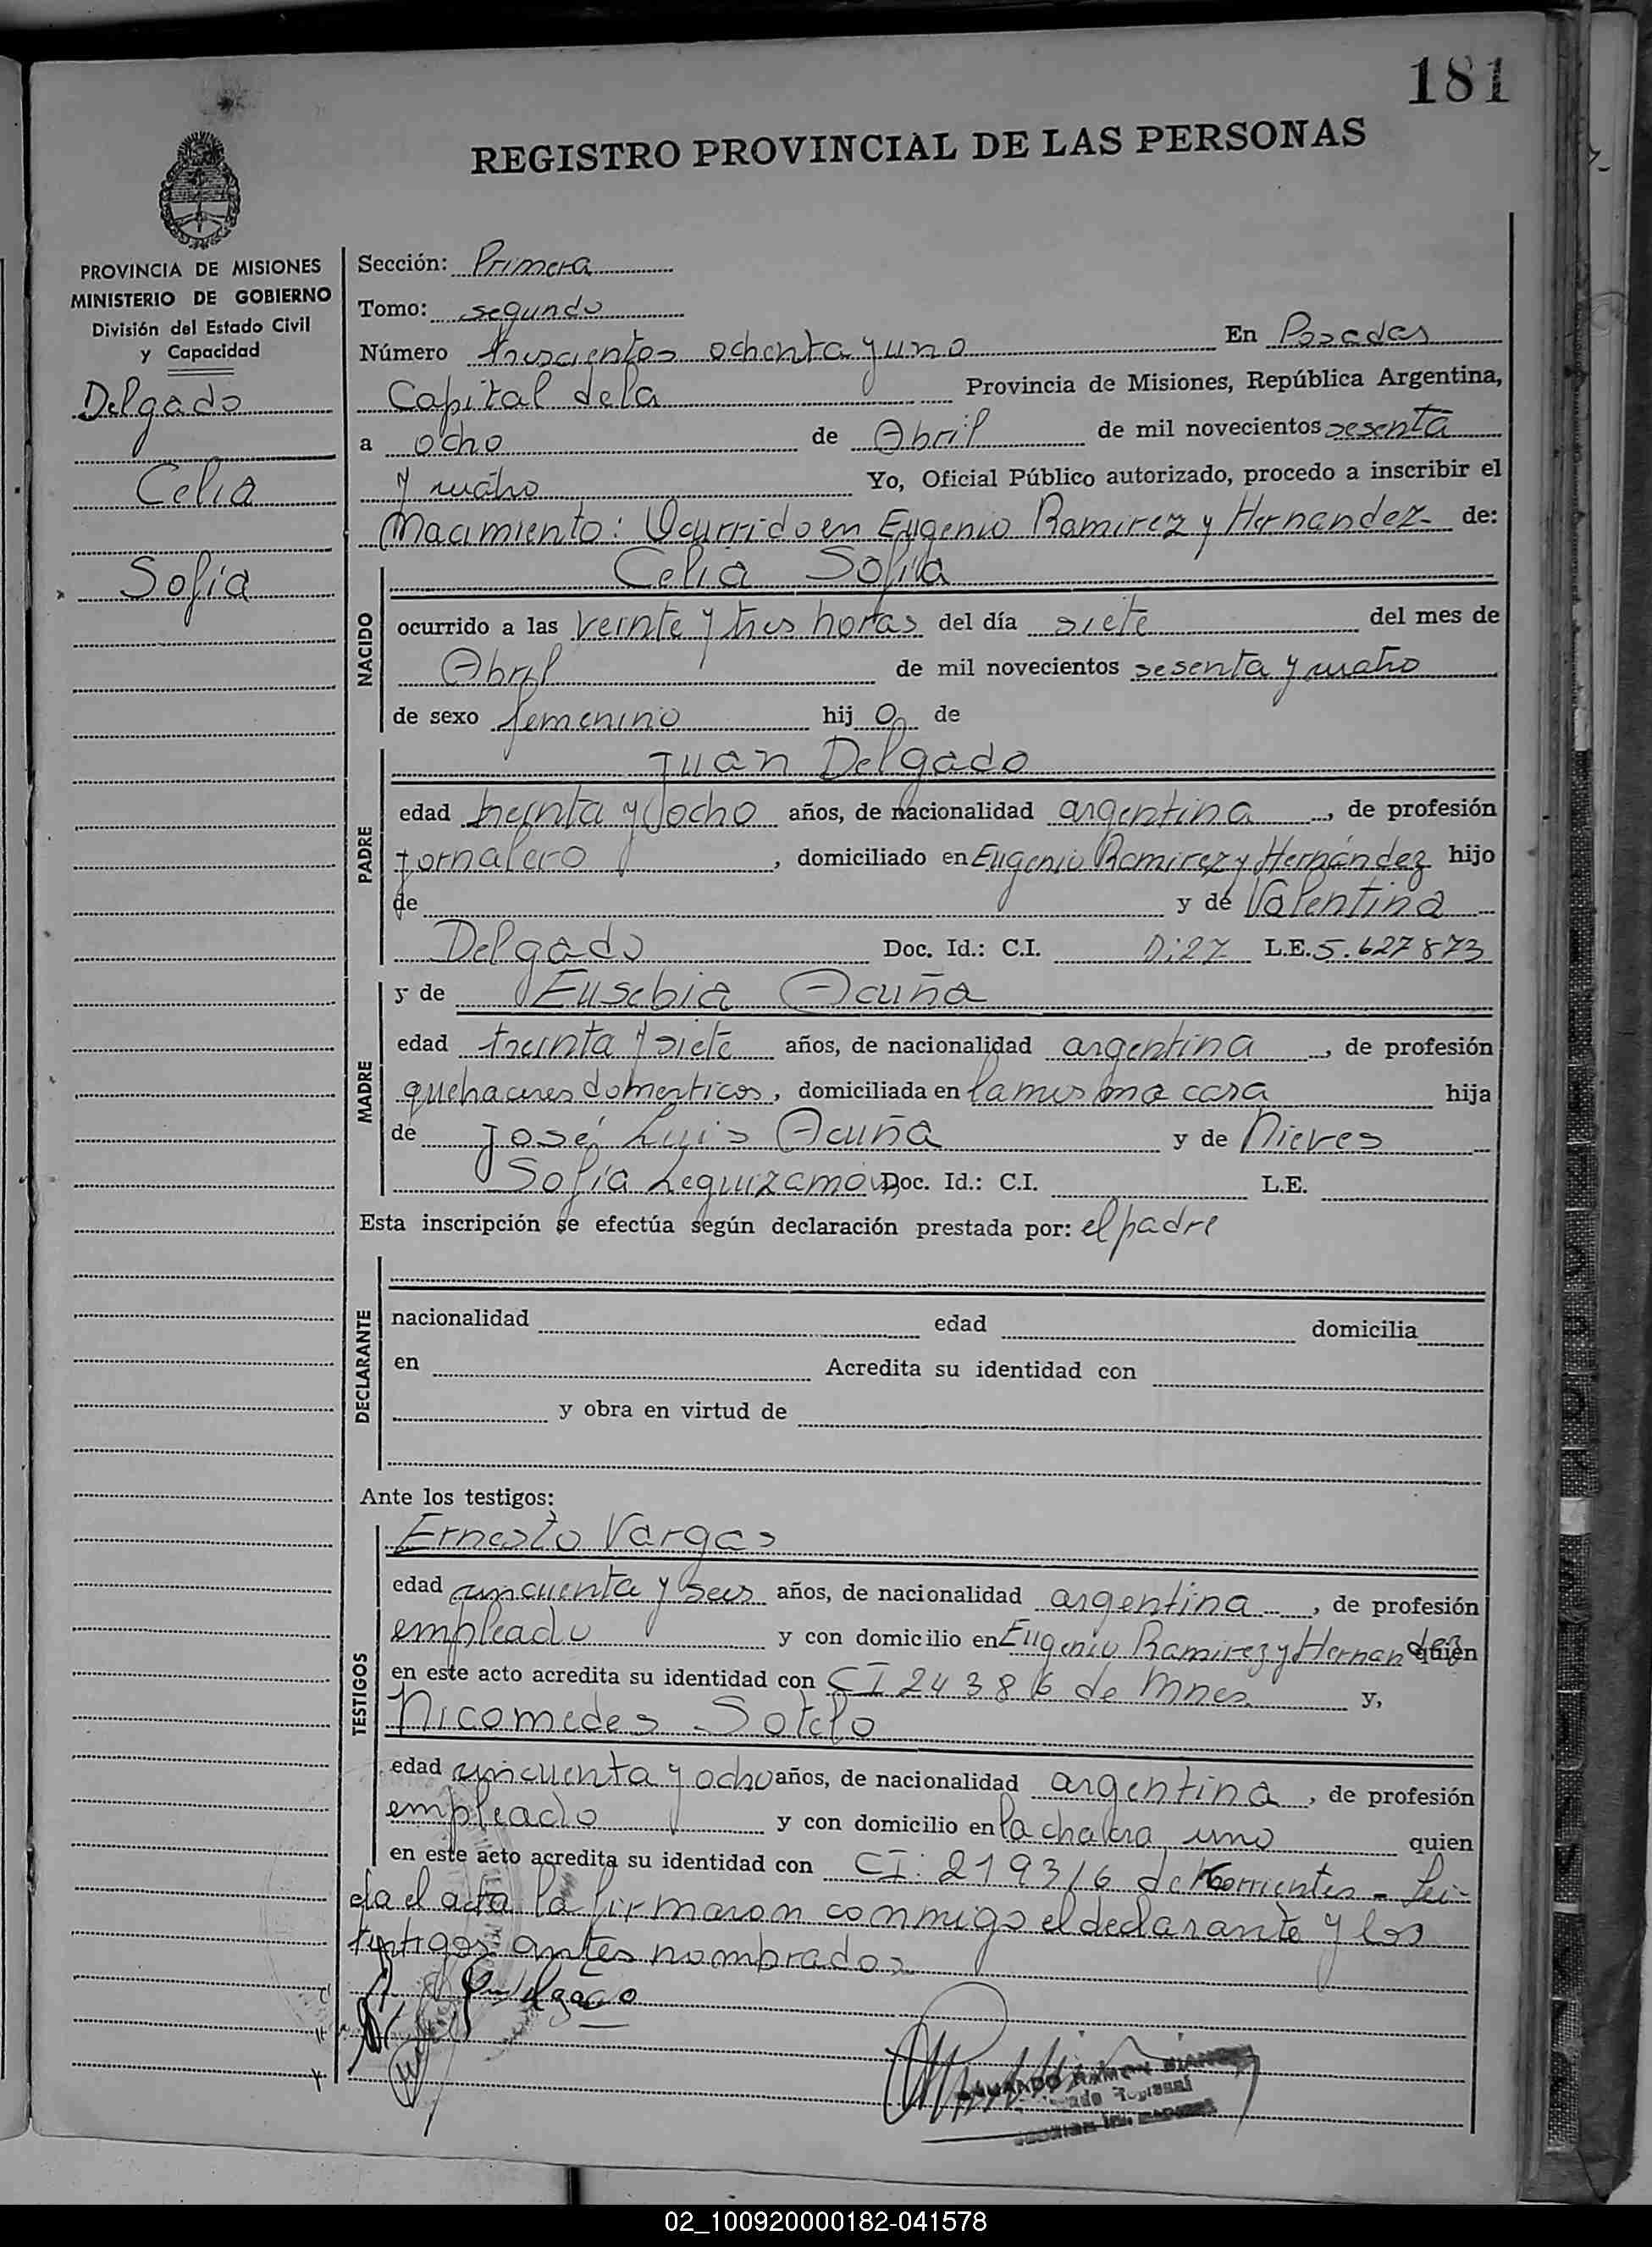 181
REGISTRO PROVINCIAL DE LAS PERSONAS
PROVINCIA DE MISIONES
MINISTERIO DE GOBIERNO
División del Estado Civil
y Capacidad
Delgado
Celia
Sofía
Sección: Primera
Tomo: segundo
Número trescientos ochenta y uno En Posadas
Capital de la Provincia de Misiones, República Argentina,
a ocho de Abril de mil novecientos sesenta
y cuatro Yo, Oficial Público autorizado, procedo a inscribir el
Nacimiento: Ocurrido en Eugenio Ramirez y Hernandez de:
NACIDO
Celia Sofía
ocurrido a las veinte y tres horas del día siete del mes de
Abril de mil novecientos sesenta y cuatro
de sexo femenino hij a de
PADRE
Juan Delgado
edad treinta y ocho años, de nacionalidad argentina, de profesión
jornalero, domiciliado en Eugenio Ramirez y Hernández hijo
de y de Valentina
Delgado Doc. Id.: C.I. D:27 L.E. 5.627873
MADRE
y de Eusebia Acuña
edad treinta y siete años, de nacionalidad argentina, de profesión
quehaceres domesticos, domiciliada en la misma casa hija
de José Luis Acuña y de Nieves
Sofía Leguizamón Doc. Id.: C.I. L.E.
Esta inscripción se efectúa según declaración prestada por: el padre
DECLARANTE
nacionalidad edad domicilia
en Acredita su identidad con
y obra en virtud de
Ante los testigos:
TESTIGOS
Ernesto Vargas
edad cincuenta y seis años, de nacionalidad argentina, de profesión
empleado y con domicilio en Eugenio Ramirez y Hernandez quien
en este acto acredita su identidad con CI 24386 de Mnes y,
Nicomedes Sotelo
edad cincuenta y ocho años, de nacionalidad argentina, de profesión
empleado y con domicilio en la chakra uno quien
en este acto acredita su identidad con CI: 219316 de Corrientes - Lei-
da el acta la firmaron conmigo el declarante y los
testigos antes nombrados
Delgado
RAMON
02_100920000182-041578